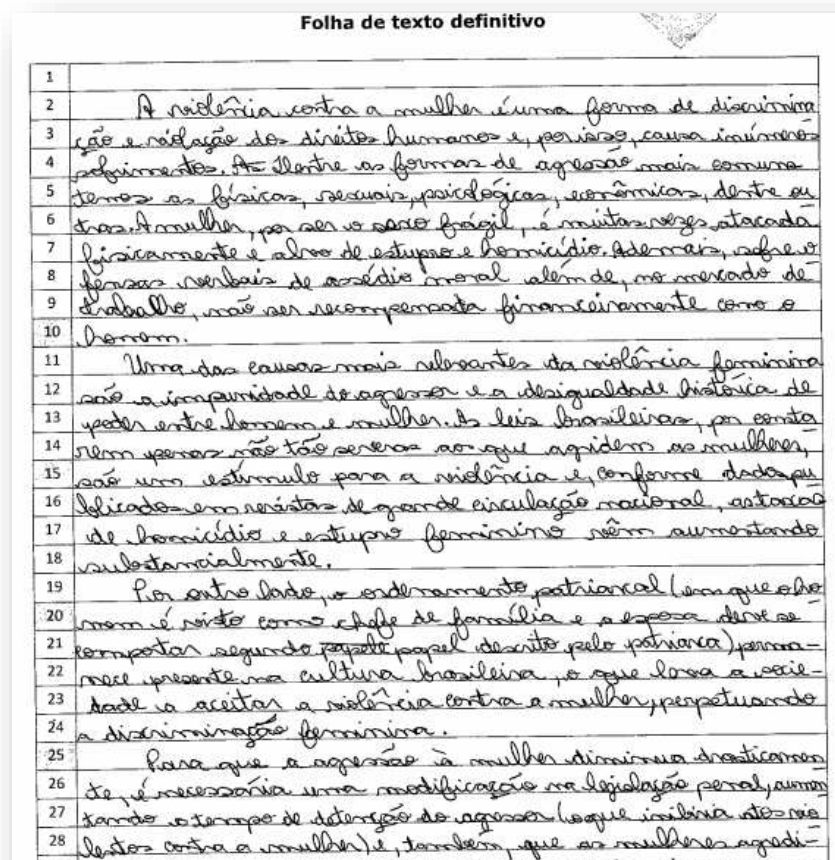 Folha de texto definitivo
1
2 A violência contra a mulher é uma forma de discrimina
3 ção e violação dos direitos humanos e, por isso, causa inúmeros
4 sofrimentos. As Dentre as formas de agressão mais comuns
5 temos as físicas, sexuais, psicológicas, econômicas, dentre ou
6 tras. A mulher, por ser o sexo frágil, é muitas vezes atacada
7 fisicamente e alvo de estupro e homicídio. Ademais, sofre o
8 fensas verbais de assédio moral além de, no mercado de
9 trabalho, não ser recompensada financeiramente como o
10 homem.
11 Uma das causas mais relevantes da violência feminina
12 são a impunidade do agressor e a desigualdade histórica de
13 poder entre homem e mulher. As leis brasileiras, por consta
14 rem penas não tão severas ao que agridem as mulheres,
15 são um estímulo para a violência e, conforme dados pu
16 blicados em revistas de grande circulação nacional, as taxas
17 de homicídio e estupro feminino vêm aumentando
18 substancialmente.
19 Por outro lado, o ordenamento patriarcal (em que o ho
20 mem é visto como chefe de família e a esposa deve se
21 comportar segundo papele papel descrito pelo patriarca) perma-
22 nece presente na cultura brasileira, o que leva a socie-
23 dade a aceitar a violência contra a mulher, perpetuando
24 a discriminação feminina.
25 Para que a agressão à mulher diminua drasticamen
26 te, é necessária uma modificação na legislação penal, aumen
27 tando o tempo de detenção do agressor (o que inibiria atos vio
28 lentos contra a mulher) e, também, que as mulheres agredi-